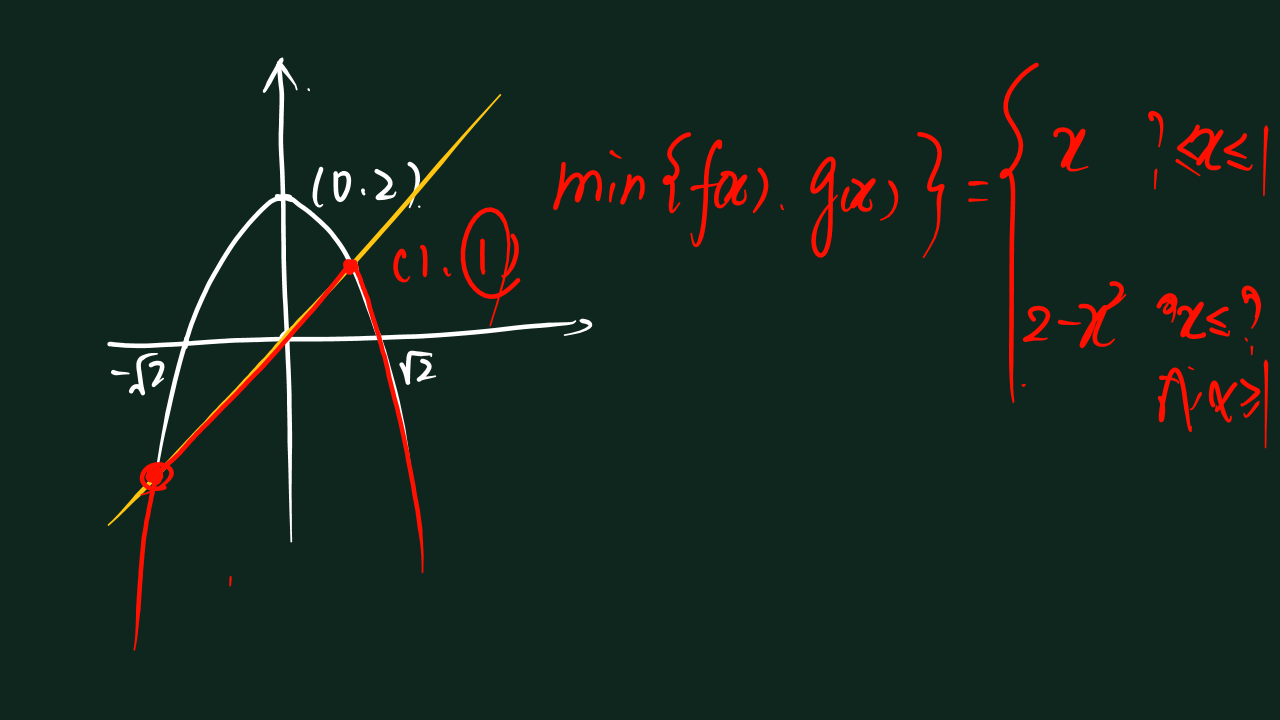 (0.2)
(1.1)
-√2
√2
min{f(x). g(x)} = {
x ? ≤x≤1
2-x² x≤?
x≥1